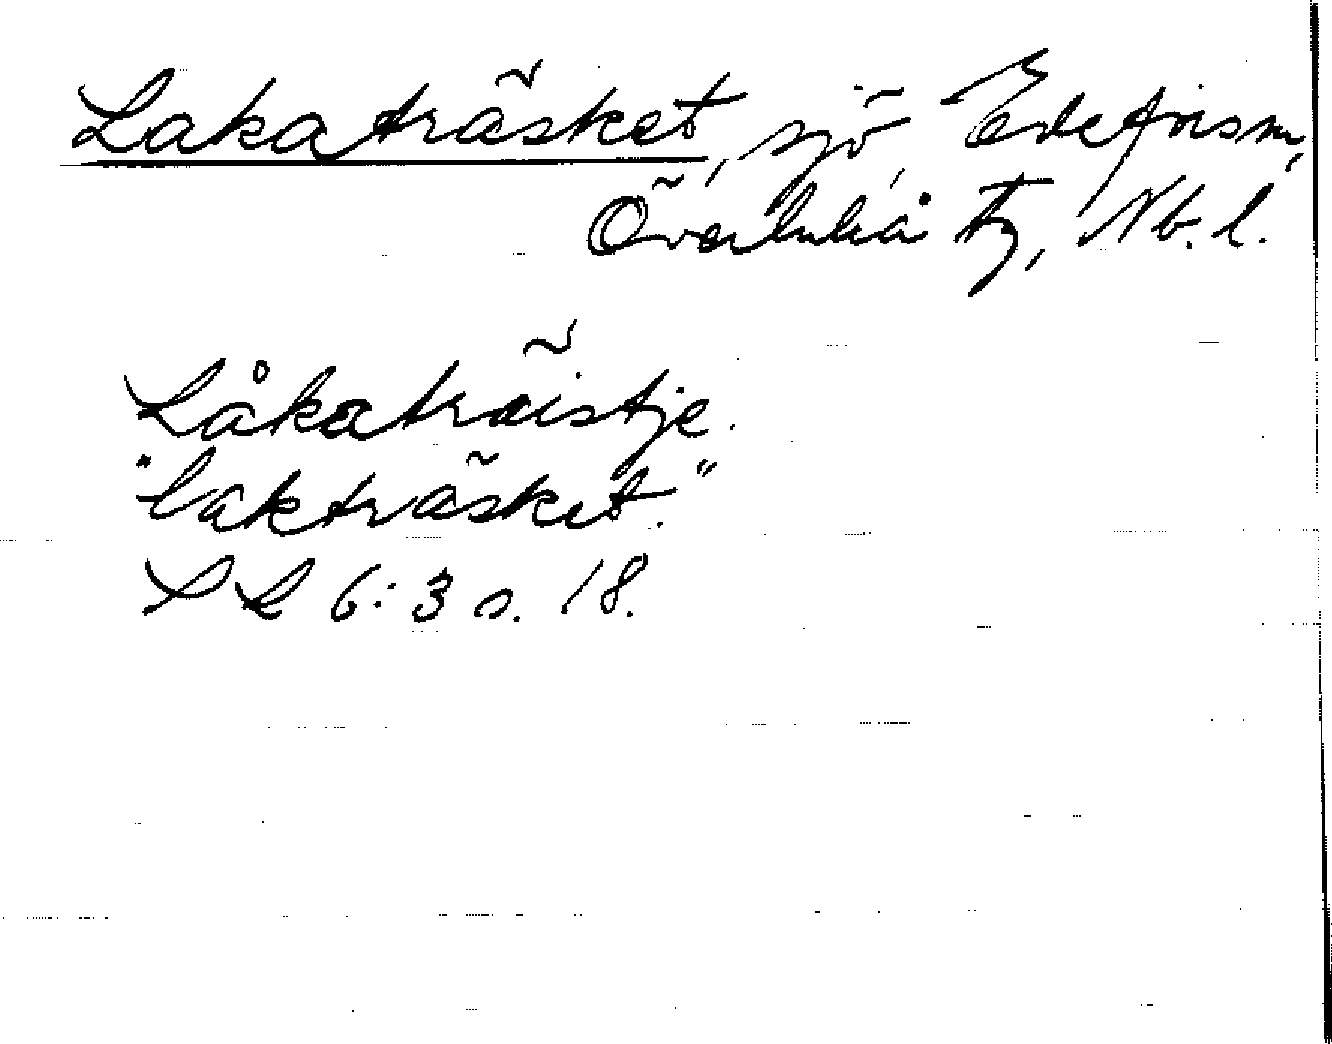 Lakaträsket, sjö, Edefors sn,
Överluleå tg, Nb. l.
Låkaträistje.
"lakträsket."
SL 6:3 s. 18.